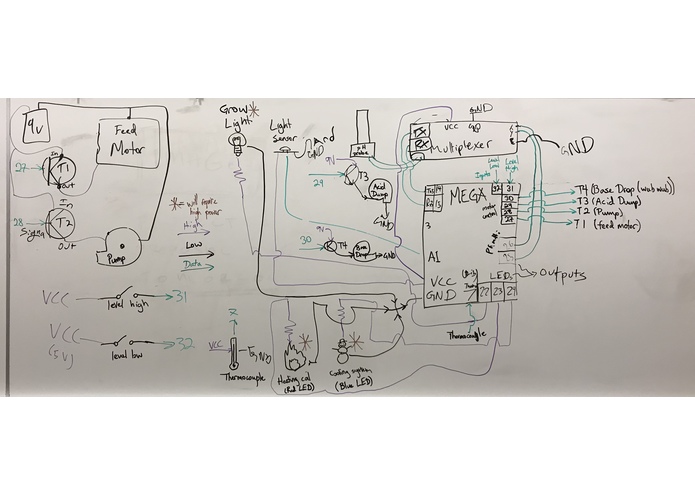 9V
Feed
Motor
27
In
T1
out
In
28
T2
Signal
out
Pump
VCC
level high
31
VCC
(5V)
level low
32
Grow
Light
* = will require
high power
High
Low
Data
VCC
GND
Thermocouple
Light
Sensor
GND
pH
probe
9V
29
T3
Acid
Dump
GND
9V
30
T4
Base
Drop
GND
Heating coil
(Red LED)
Cooling system
(Blue LED)
GND
VCC
TX
RX
Multiplexer
GND
Level
Low
Level
High
Inputs
32 31
MEGA
30
29
28
27
motor
control
3
A1
VCC
GND
LEDs
22 23 24
Outputs
Thermocouple
T4 (Base Drop (wub wub))
T3 (Acid Dump)
T2 (Pump)
T1 (feed motor)